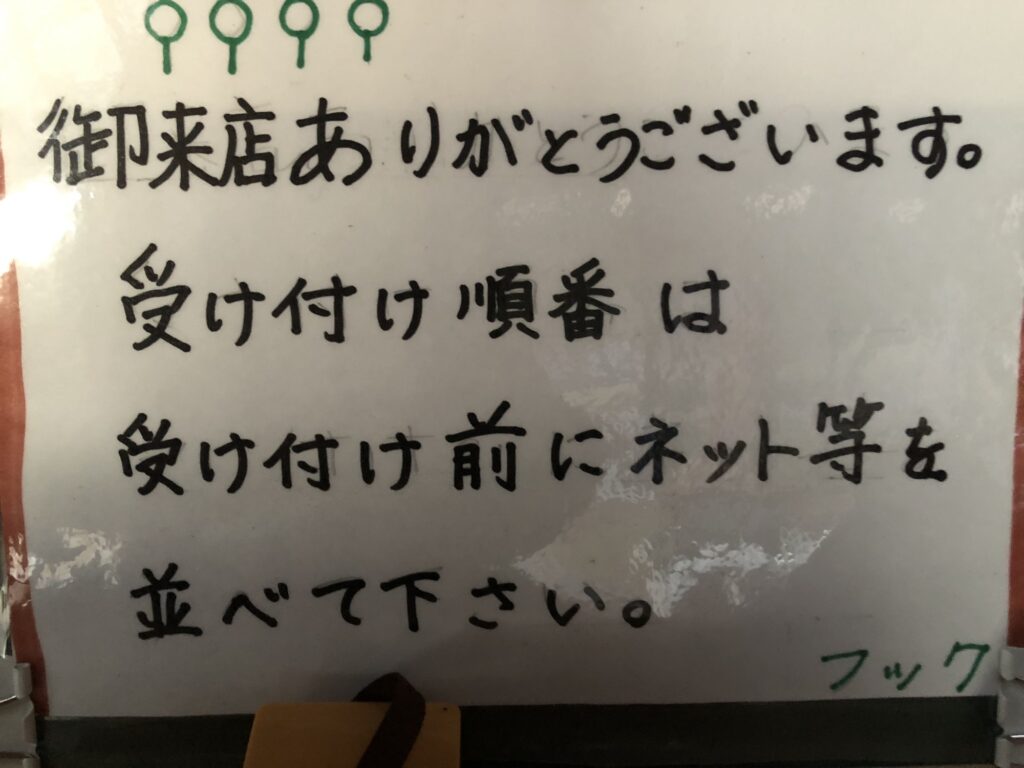 御来店ありがとうございます。
受け付け順番は
受け付け前にネット等を
並べて下さい。
フック